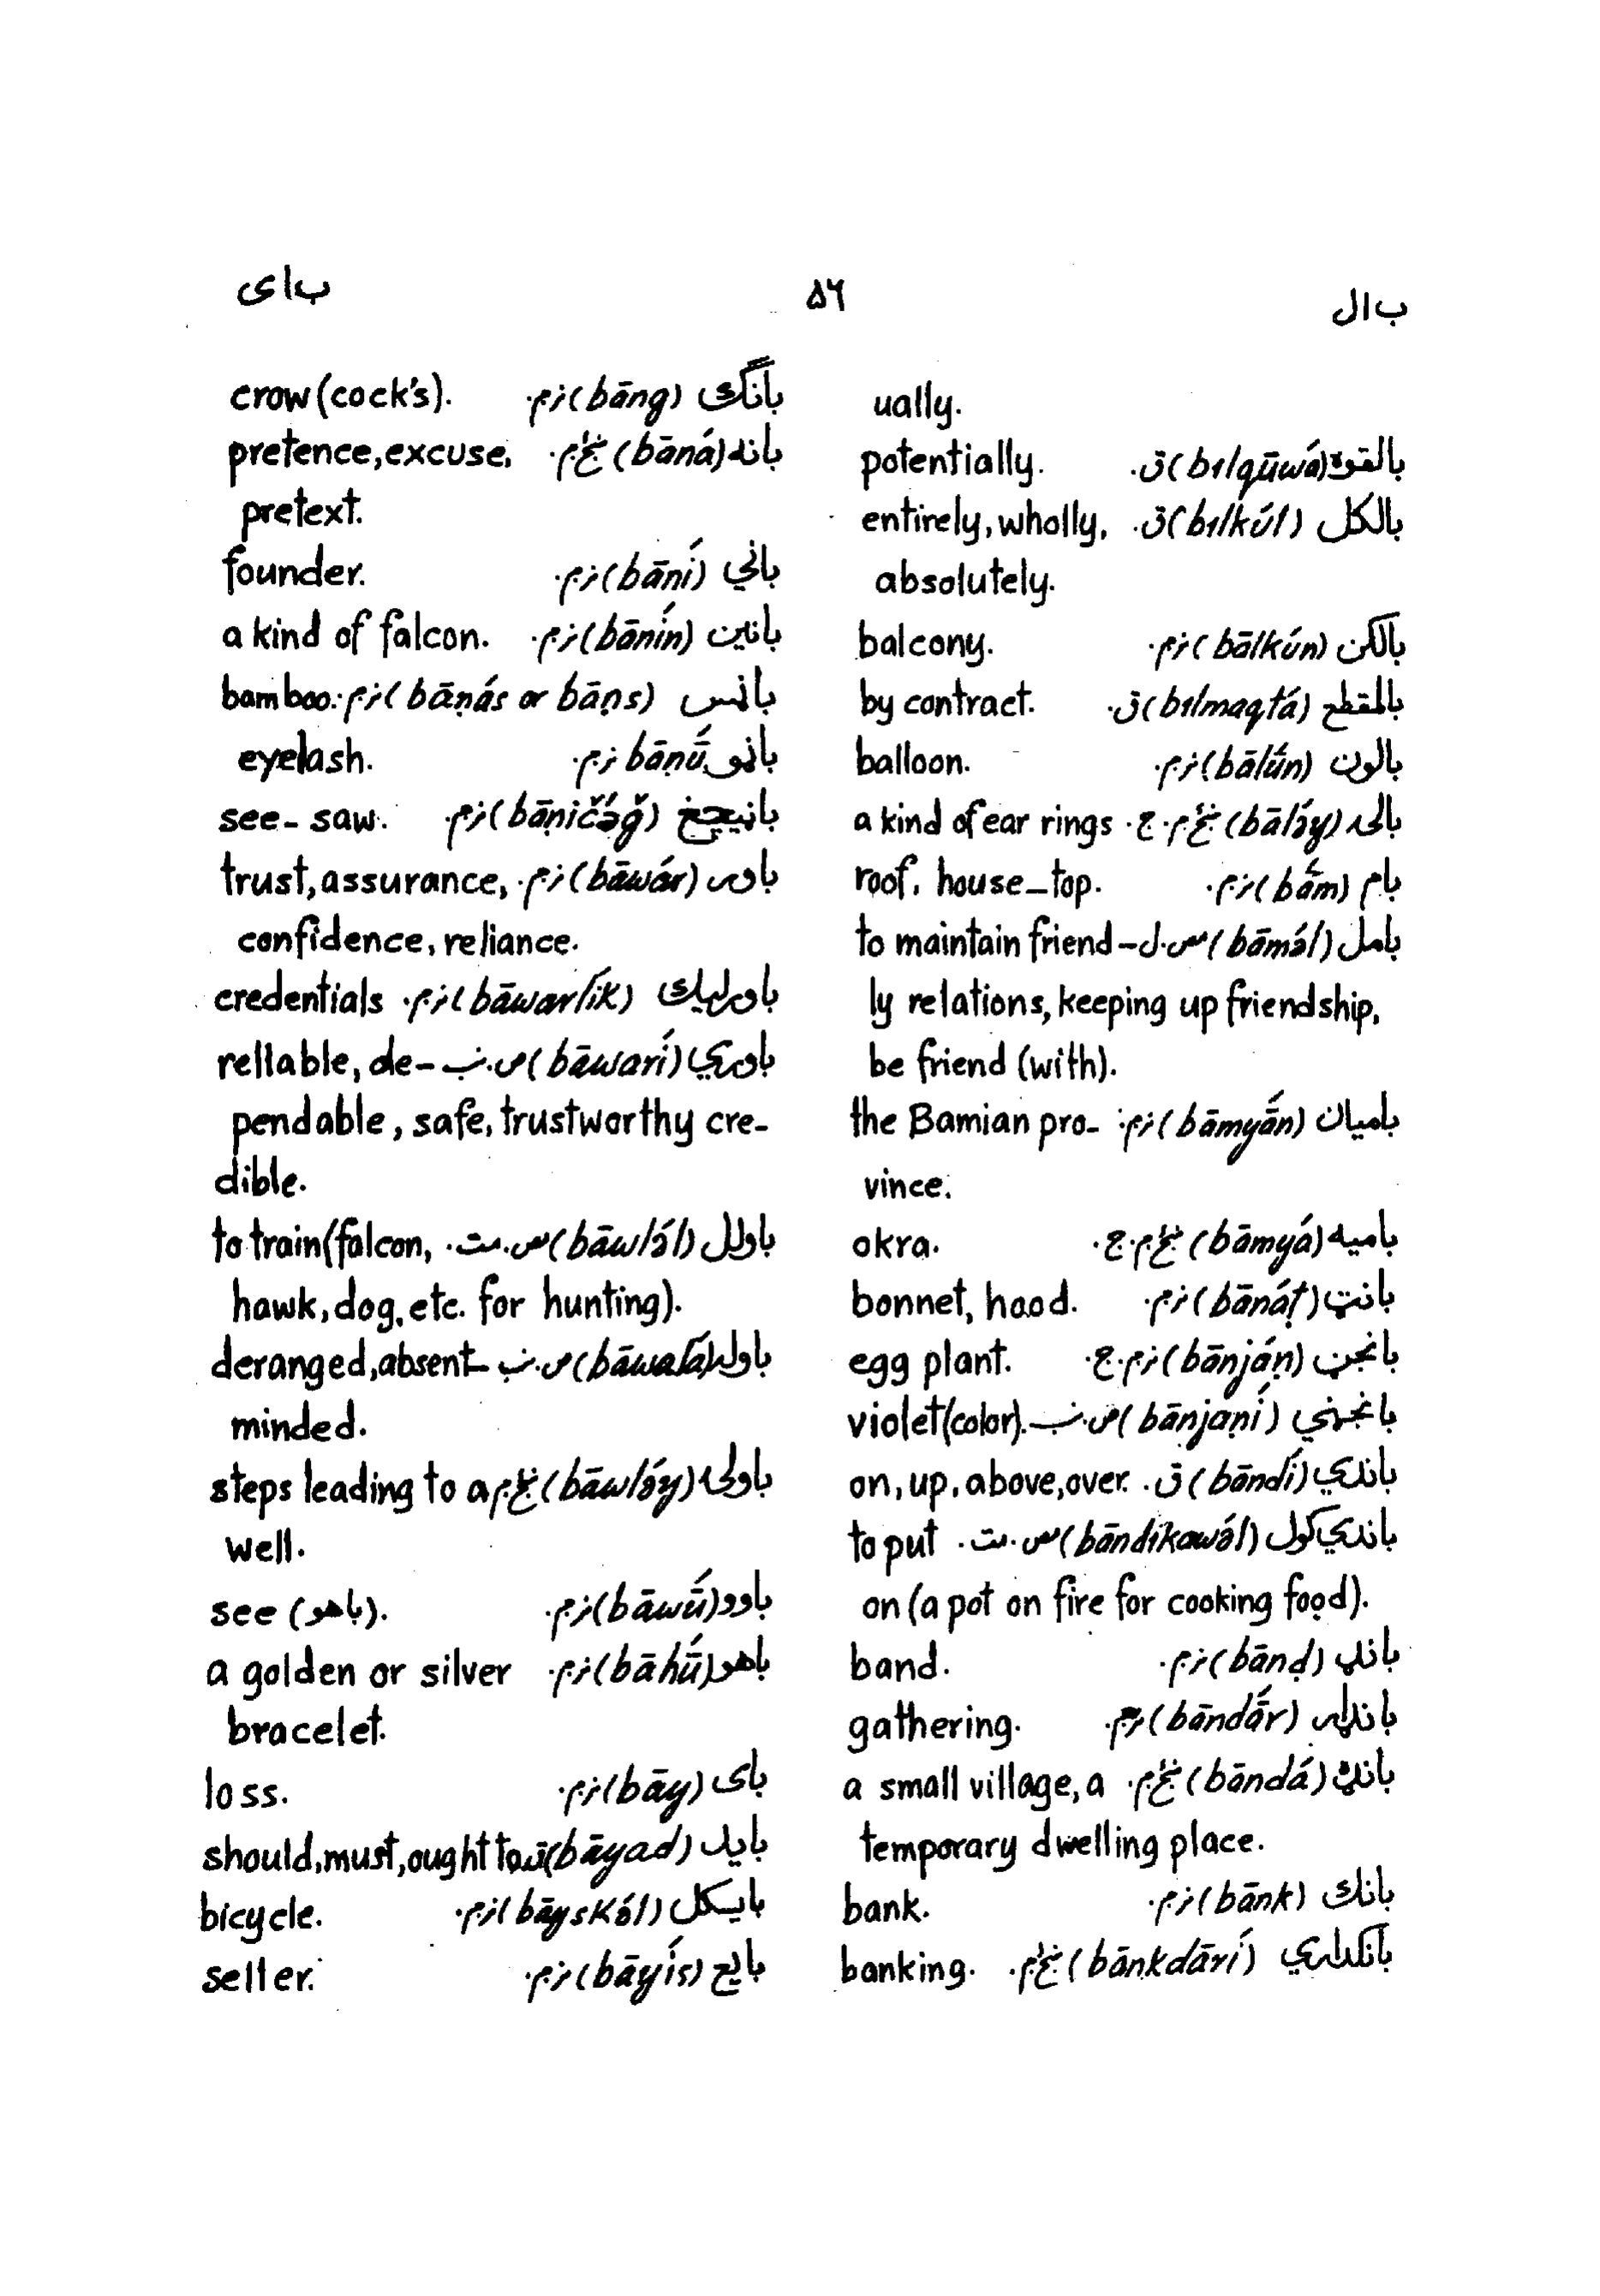 ب ال ۵۶ ب ای
ually.
بالقوه (bɪlqūwá) ق. potentially.
بالکل (bɪlkúl) ق. entirely, wholly,
absolutely.
بالکن (bālkún) نر.م. balcony.
بالمقطع (bɪlmaqtá) ق. by contract.
بالون (bālū́n) نر.م. balloon.
بالۍ (bālә́y) ښځ.م.ج. a kind of ear rings
بام (bā́m) نر.م. roof, house-top.
بامل (bāmә́l) مص.ل- to maintain friend-
ly relations, keeping up friendship,
be friend (with).
باميان (bāmyā́n) نر.م. the Bamian pro-
vince.
باميه (bāmyá) ښځ.م.ج. okra.
بانټ (bānáṭ) نر.م. bonnet, hood.
بانجڼ (bānjáṇ) نر.م.ج. egg plant.
بانجڼي (bānjaṇí) violet (color).
باندي (bāndí) ق. on, up, above, over.
باندي کول (bāndikawә́l) مص.مت. to put
on (a pot on fire for cooking food).
بانډ (bānḍ) نر.م. band.
باندار (bāndā́r) نر.م. gathering.
بانډه (bāndá) ښځ.م. a small village, a
temporary dwelling place.
بانک (bānk) نر.م. bank.
بانکداري (bānkdārí) ښځ.م. banking.
بانګ (bāng) نر.م. crow (cock's).
بانه (bāná) ښځ.م. pretence, excuse,
pretext.
باني (bāní) نر.م. founder.
بانين (bānín) نر.م. a kind of falcon.
باڼس (bāṇás or bāṇs) نر.م. bamboo.
باڼو bāṇū́ نر.م. eyelash.
باڼيچغ (bāṇičә́ğ) نر.م. see-saw.
باور (bāwár) نر.م. trust, assurance,
confidence, reliance.
باورليک (bāwarlík) نر.م. credentials
باوري (bāwarí) reliable, de-
pendable, safe, trustworthy cre-
dible.
باولل (bāwlә́l) مص.مت. to train (falcon,
hawk, dog, etc. for hunting).
باوله (bāwalá) deranged, absent-
minded.
باولۍ (bāwlә́y) ښځ.م. steps leading to a
well.
باوو (bāwū́) نر.م. see (باهو).
باهو (bāhū́) نر.م. a golden or silver
bracelet.
بای (bāy) نر.م. loss.
بايد (bāyad) ق should, must, ought to.
بايسکل (bāyskә́l) نر.م. bicycle.
بايع (bāyís) نر.م. seller.